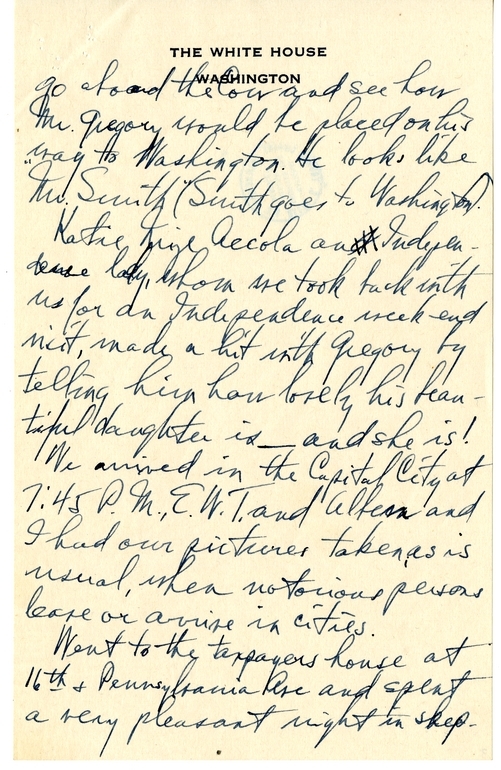 THE WHITE HOUSE
WASHINGTON
go aboard the Cow and see how
Mr. Gregory would be placed on his
way to Washington. He looks like
"Mr. Smith" (Smith goes to Washington).
Natie Accola an Indepen-
dence lady, whom we took back with
us for an Independence week-end
visit, made a hit with Gregory by
telling him how lovely his beau-
tiful daughter is — and she is!
We arrived in the Capital City at
7:45 P.M., E.W.T. and Alben and
I had our pictures taken, as is
usual, when notorious persons
leave or arrive in cities.
Went to the taxpayers house at
16th & Pennsylvania Ave and spent
a very pleasant night in sleep-